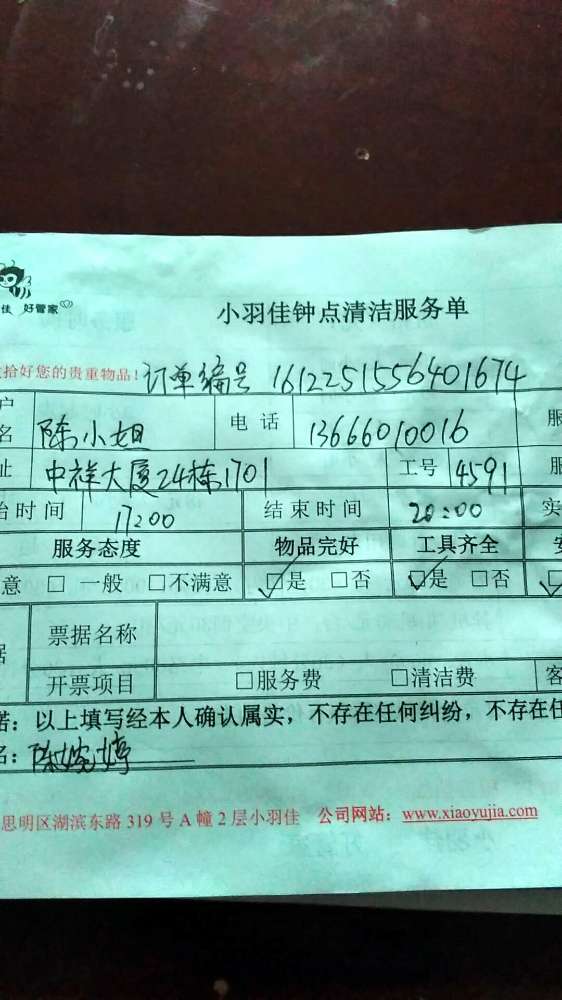 佳 好管家
小羽佳钟点清洁服务单
拾好您的贵重物品! 订单编号 1612251556401674
户名 陈小姐 电话 13666010016 服
址 中祥大厦24栋1701 工号 4591 服
始时间 17:00 结束时间 20:00 实
服务态度 物品完好 工具齐全
意 □一般 □不满意 ☑是 □否 ☑是 □否
据 票据名称
开票项目 □服务费 □清洁费 客
诺:以上填写经本人确认属实,不存在任何纠纷,不存在任
名:陈婉婷
思明区湖滨东路 319 号 A 幢 2 层小羽佳 公司网站:www.xiaoyujia.com